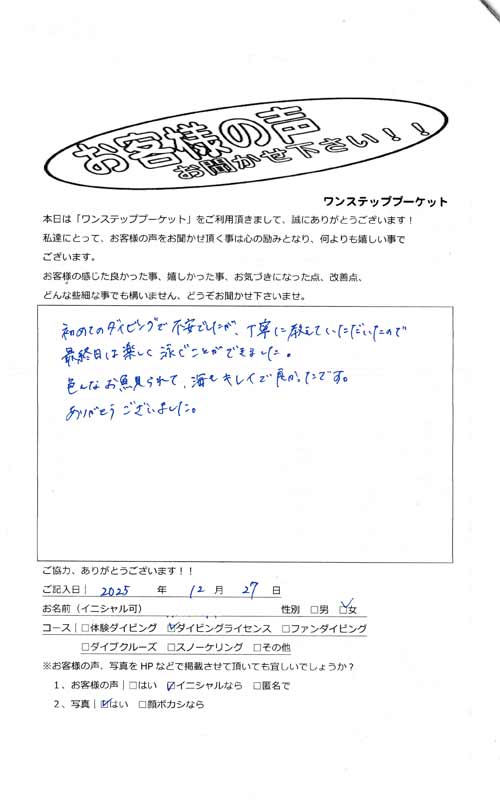 お客様の声
お聞かせ下さい！！
ワンステッププーケット
本日は「ワンステッププーケット」をご利用頂きまして、誠にありがとうございます！
私達にとって、お客様の声をお聞かせ頂く事は心の励みとなり、何よりも嬉しい事で
ございます。
お客様の感じた良かった事、嬉しかった事、お気づきになった点、改善点、
どんな些細な事でも構いません、どうぞお聞かせ下さいませ。
初めてのダイビングで不安でしたが、丁寧に教えていただいたので
最終日は楽しく泳ぐことができました。
色んなお魚見られて、海もキレイで良かったです。
ありがとうございました。
ご協力、ありがとうございます！！
ご記入日| 2025 年 12 月 27 日
お名前（イニシャル可） 性別 □男 ☑女
コース| □体験ダイビング ☑ダイビングライセンス □ファンダイビング
□ダイブクルーズ □スノーケリング □その他
※お客様の声、写真を HP などで掲載させて頂いても宜しいでしょうか？
1、お客様の声| □はい ☑イニシャルなら □匿名で
2、写真| ☑はい □顔ボカシなら